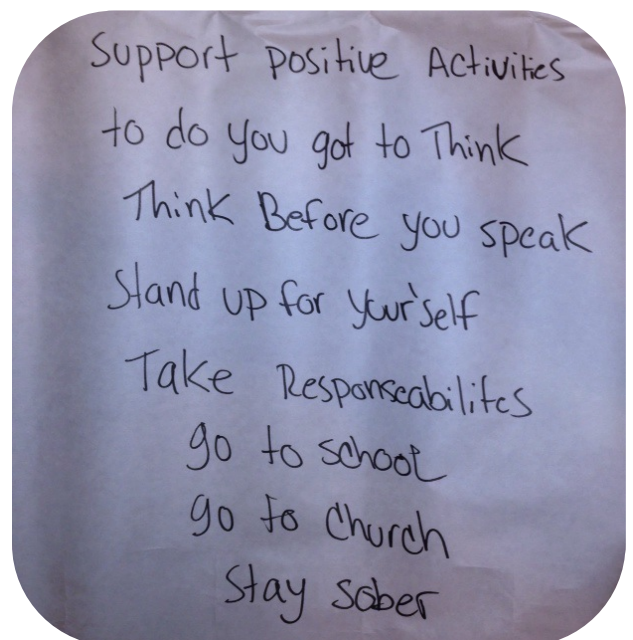 Support positive Activities
to do you got to Think
Think Before you speak
Stand up for your'self
Take Responseabilites
go to school
go to Church
Stay sober